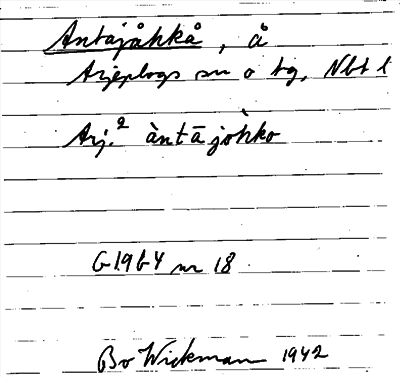 Antajåhkå, å
Arjeplogs sn o tg, Nbt l
Arj.² àntājòhko
G1964 nr 18
Bo Wickman 1942